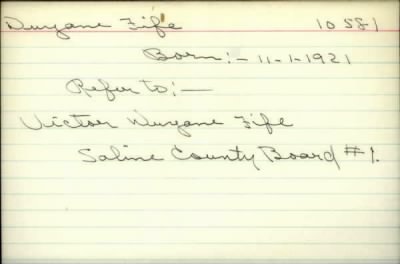 Duryane Fife 10581
Born:- 11-1-1921
Refer to:-
Victor Duryane Fife
Saline County Board #1.